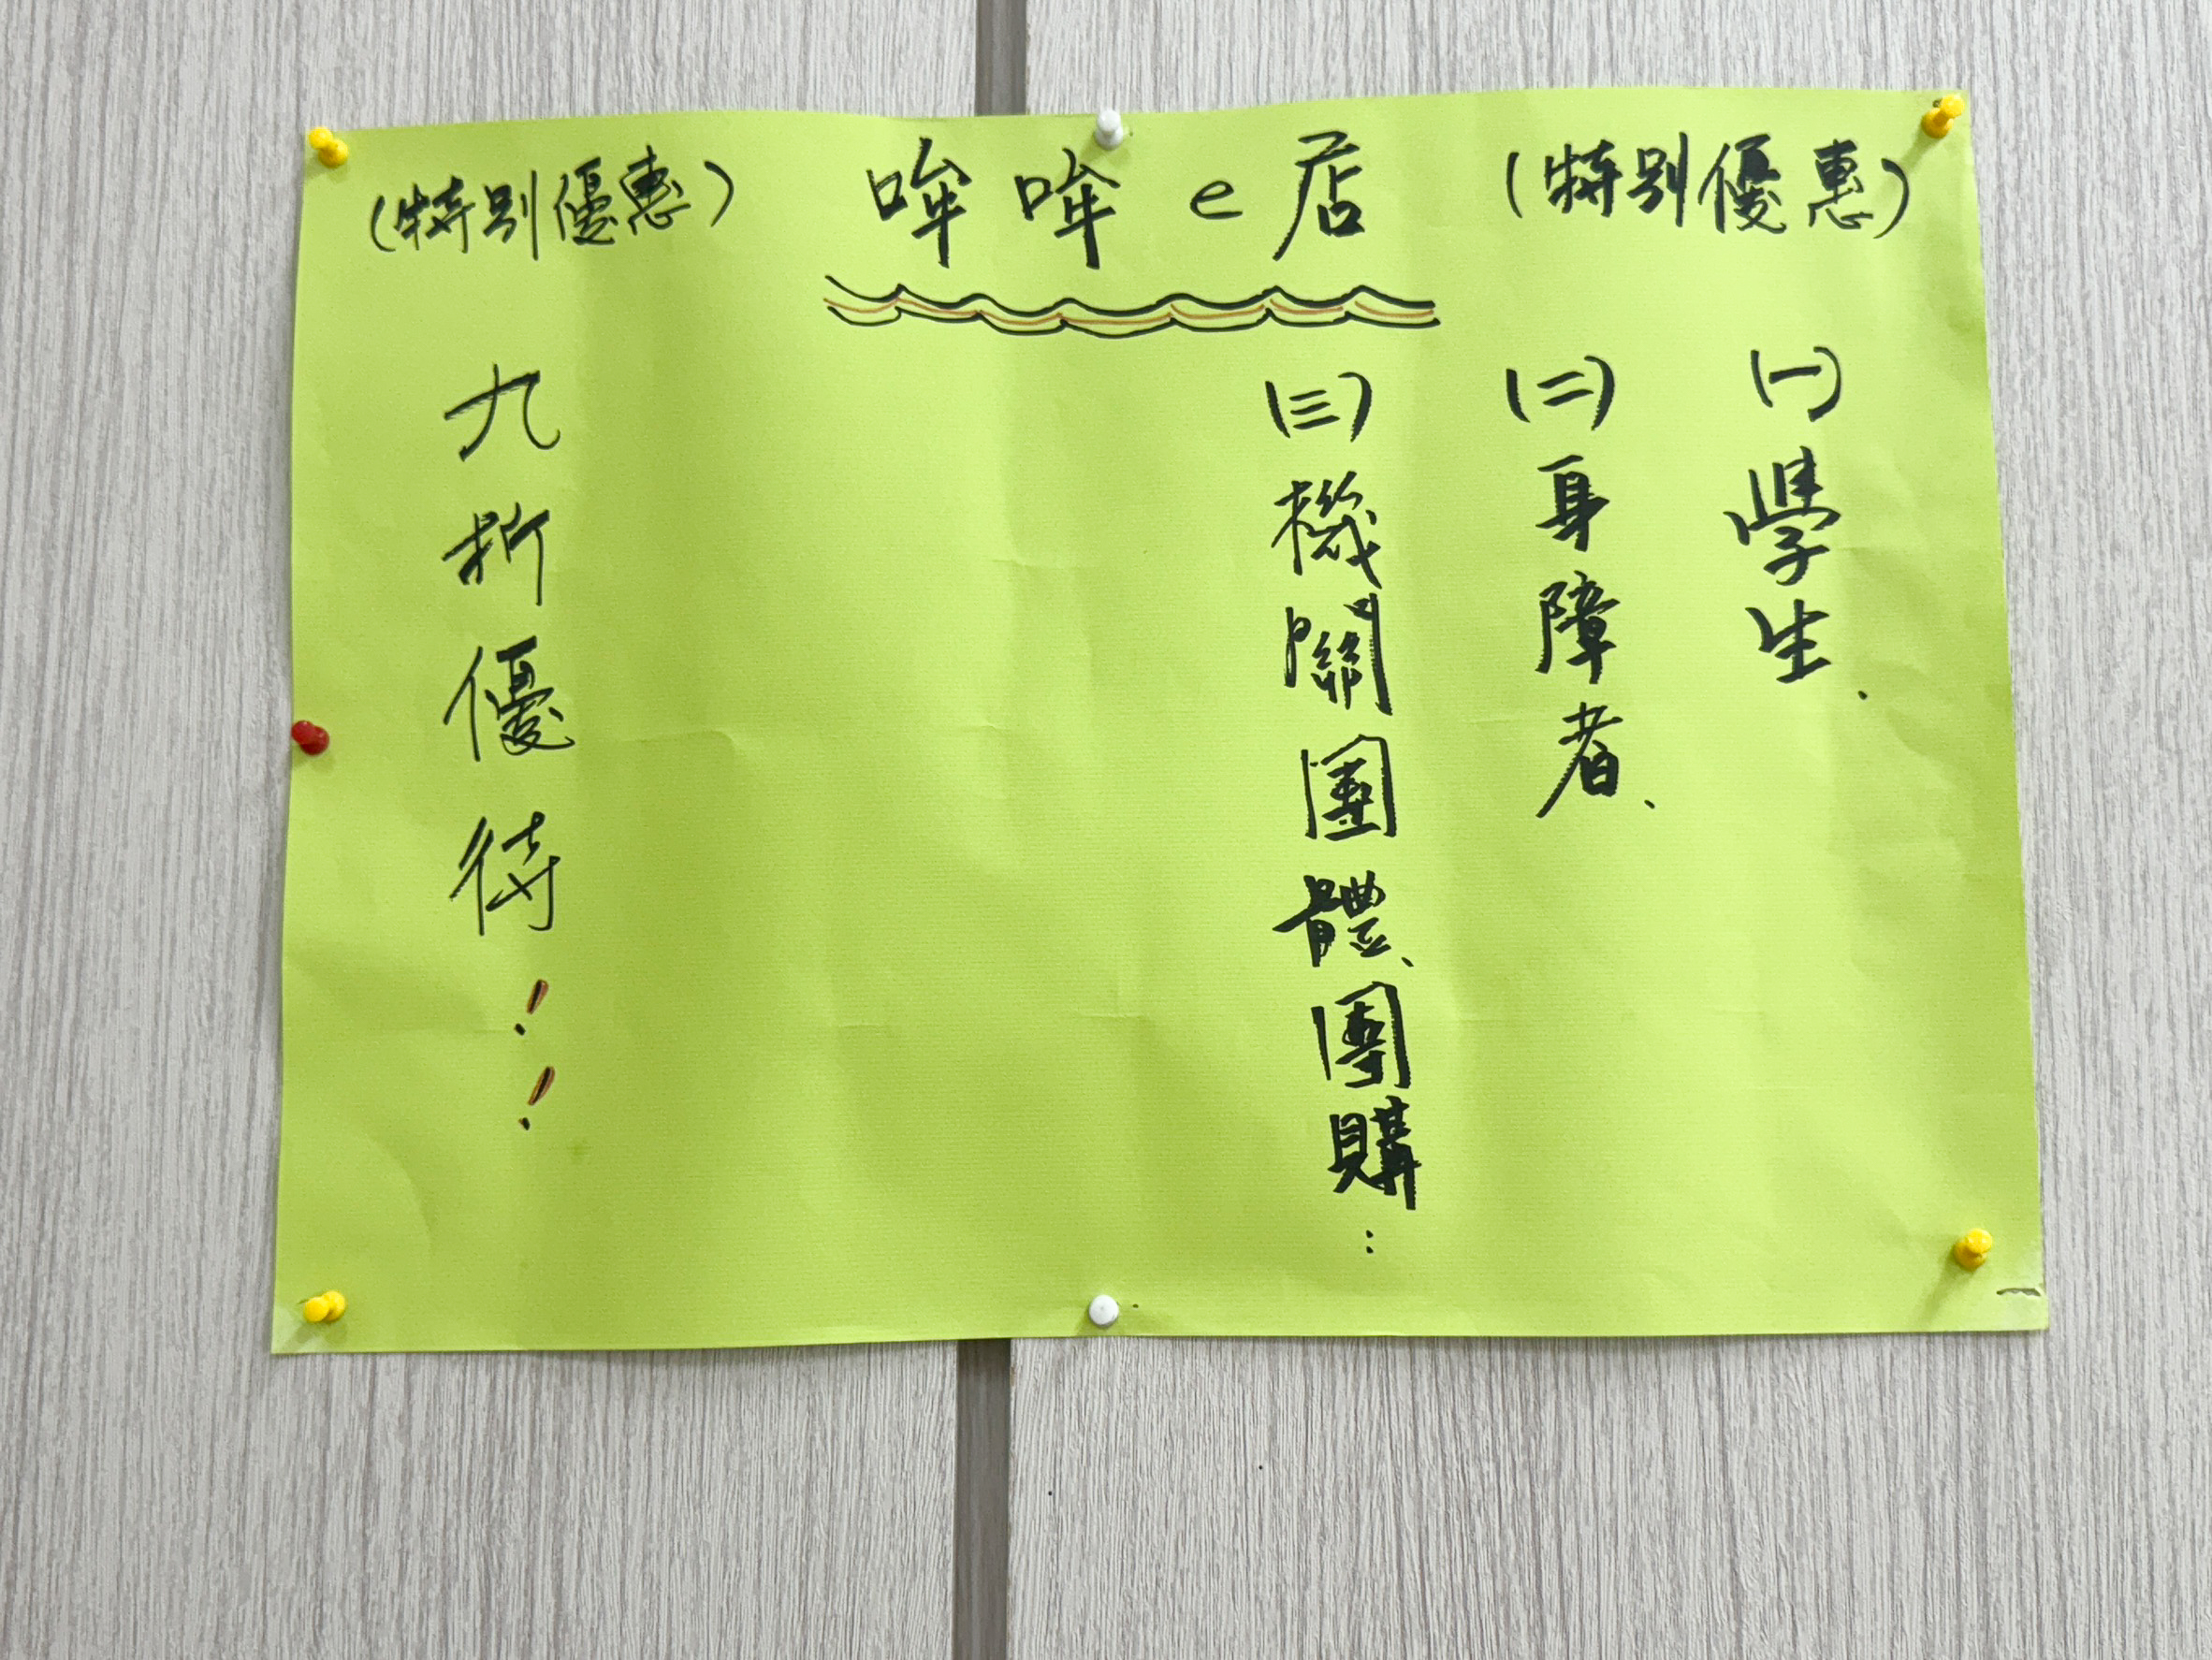 (特別優惠) 哞哞e店 (特別優惠)
(一)學生.
(二)身障者、
(三)機關團體、團購…
九折優待!!